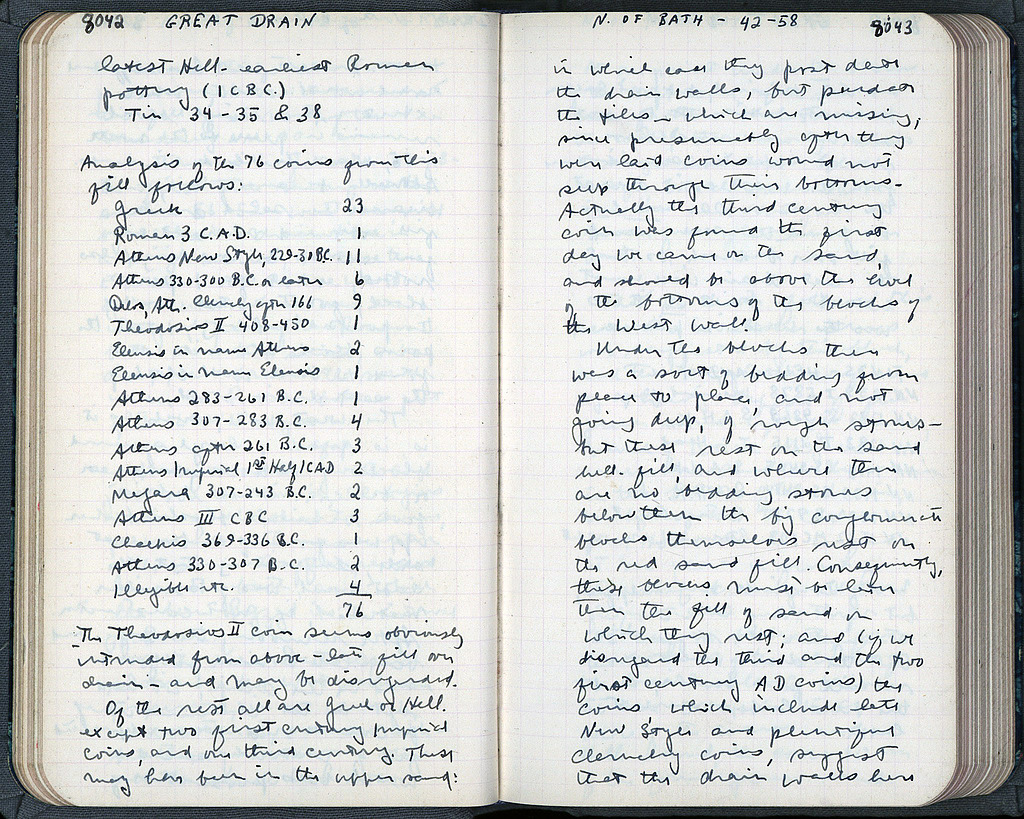 8042 GREAT DRAIN
latest Hell. earliest Roman
pottery (I C BC.)
Tin 34-35 & 38
Analysis of the 76 coins from this
fill follows:
Greek 23
Roman 3 C. A.D. 1
Athens New Style, 229-31 B.C. 11
Athens 330-300 B.C. or later 6
Delos, Ath. Cleruchy after 166 9
Theodosius II 408-450 1
Eleusis in name Athens 2
Eleusis in name Eleusis 1
Athens 283-261 B.C. 1
Athens 307-283 B.C. 4
Athens after 261 B.C. 3
Athens Imperial 1st Half I C AD 2
Megara 307-243 B.C. 2
Athens III C BC 3
Chalkis 369-336 B.C. 1
Athens 330-307 B.C. 2
Illegible etc. 4
76
The Theodosius II coin seems obviously
intruded from above - late fill over
drain - and may be disregarded.
Of the rest all are Greek or Hell.
except two first century Imperial
coins, and one third century. These
may have been in the upper sand:
N. OF BATH - 42-58 8043
in which case they post date
the drain walls, but predate
the tiles - which are missing,
since presumably after they
were laid coins would not
seep through their bottoms.
Actually the third century
coin was found the first
day we came on the sand,
and should be above the level
of the bottoms of the blocks of
the West wall.
Under the blocks there
was a sort of bedding from
place to place, and not
going deep, of rough stones -
but these rest on the sand
fill, and where there
are no bedding stones
below them the big conglomerate
blocks themselves rest on
the red sand fill. Consequently,
these blocks must be later
than the fill of sand on
which they rest; and (if we
disregard the third and the two
first century AD coins) the
coins which include late
New Styles and plentiful
cleruchy coins, suggest
that the drain walls here